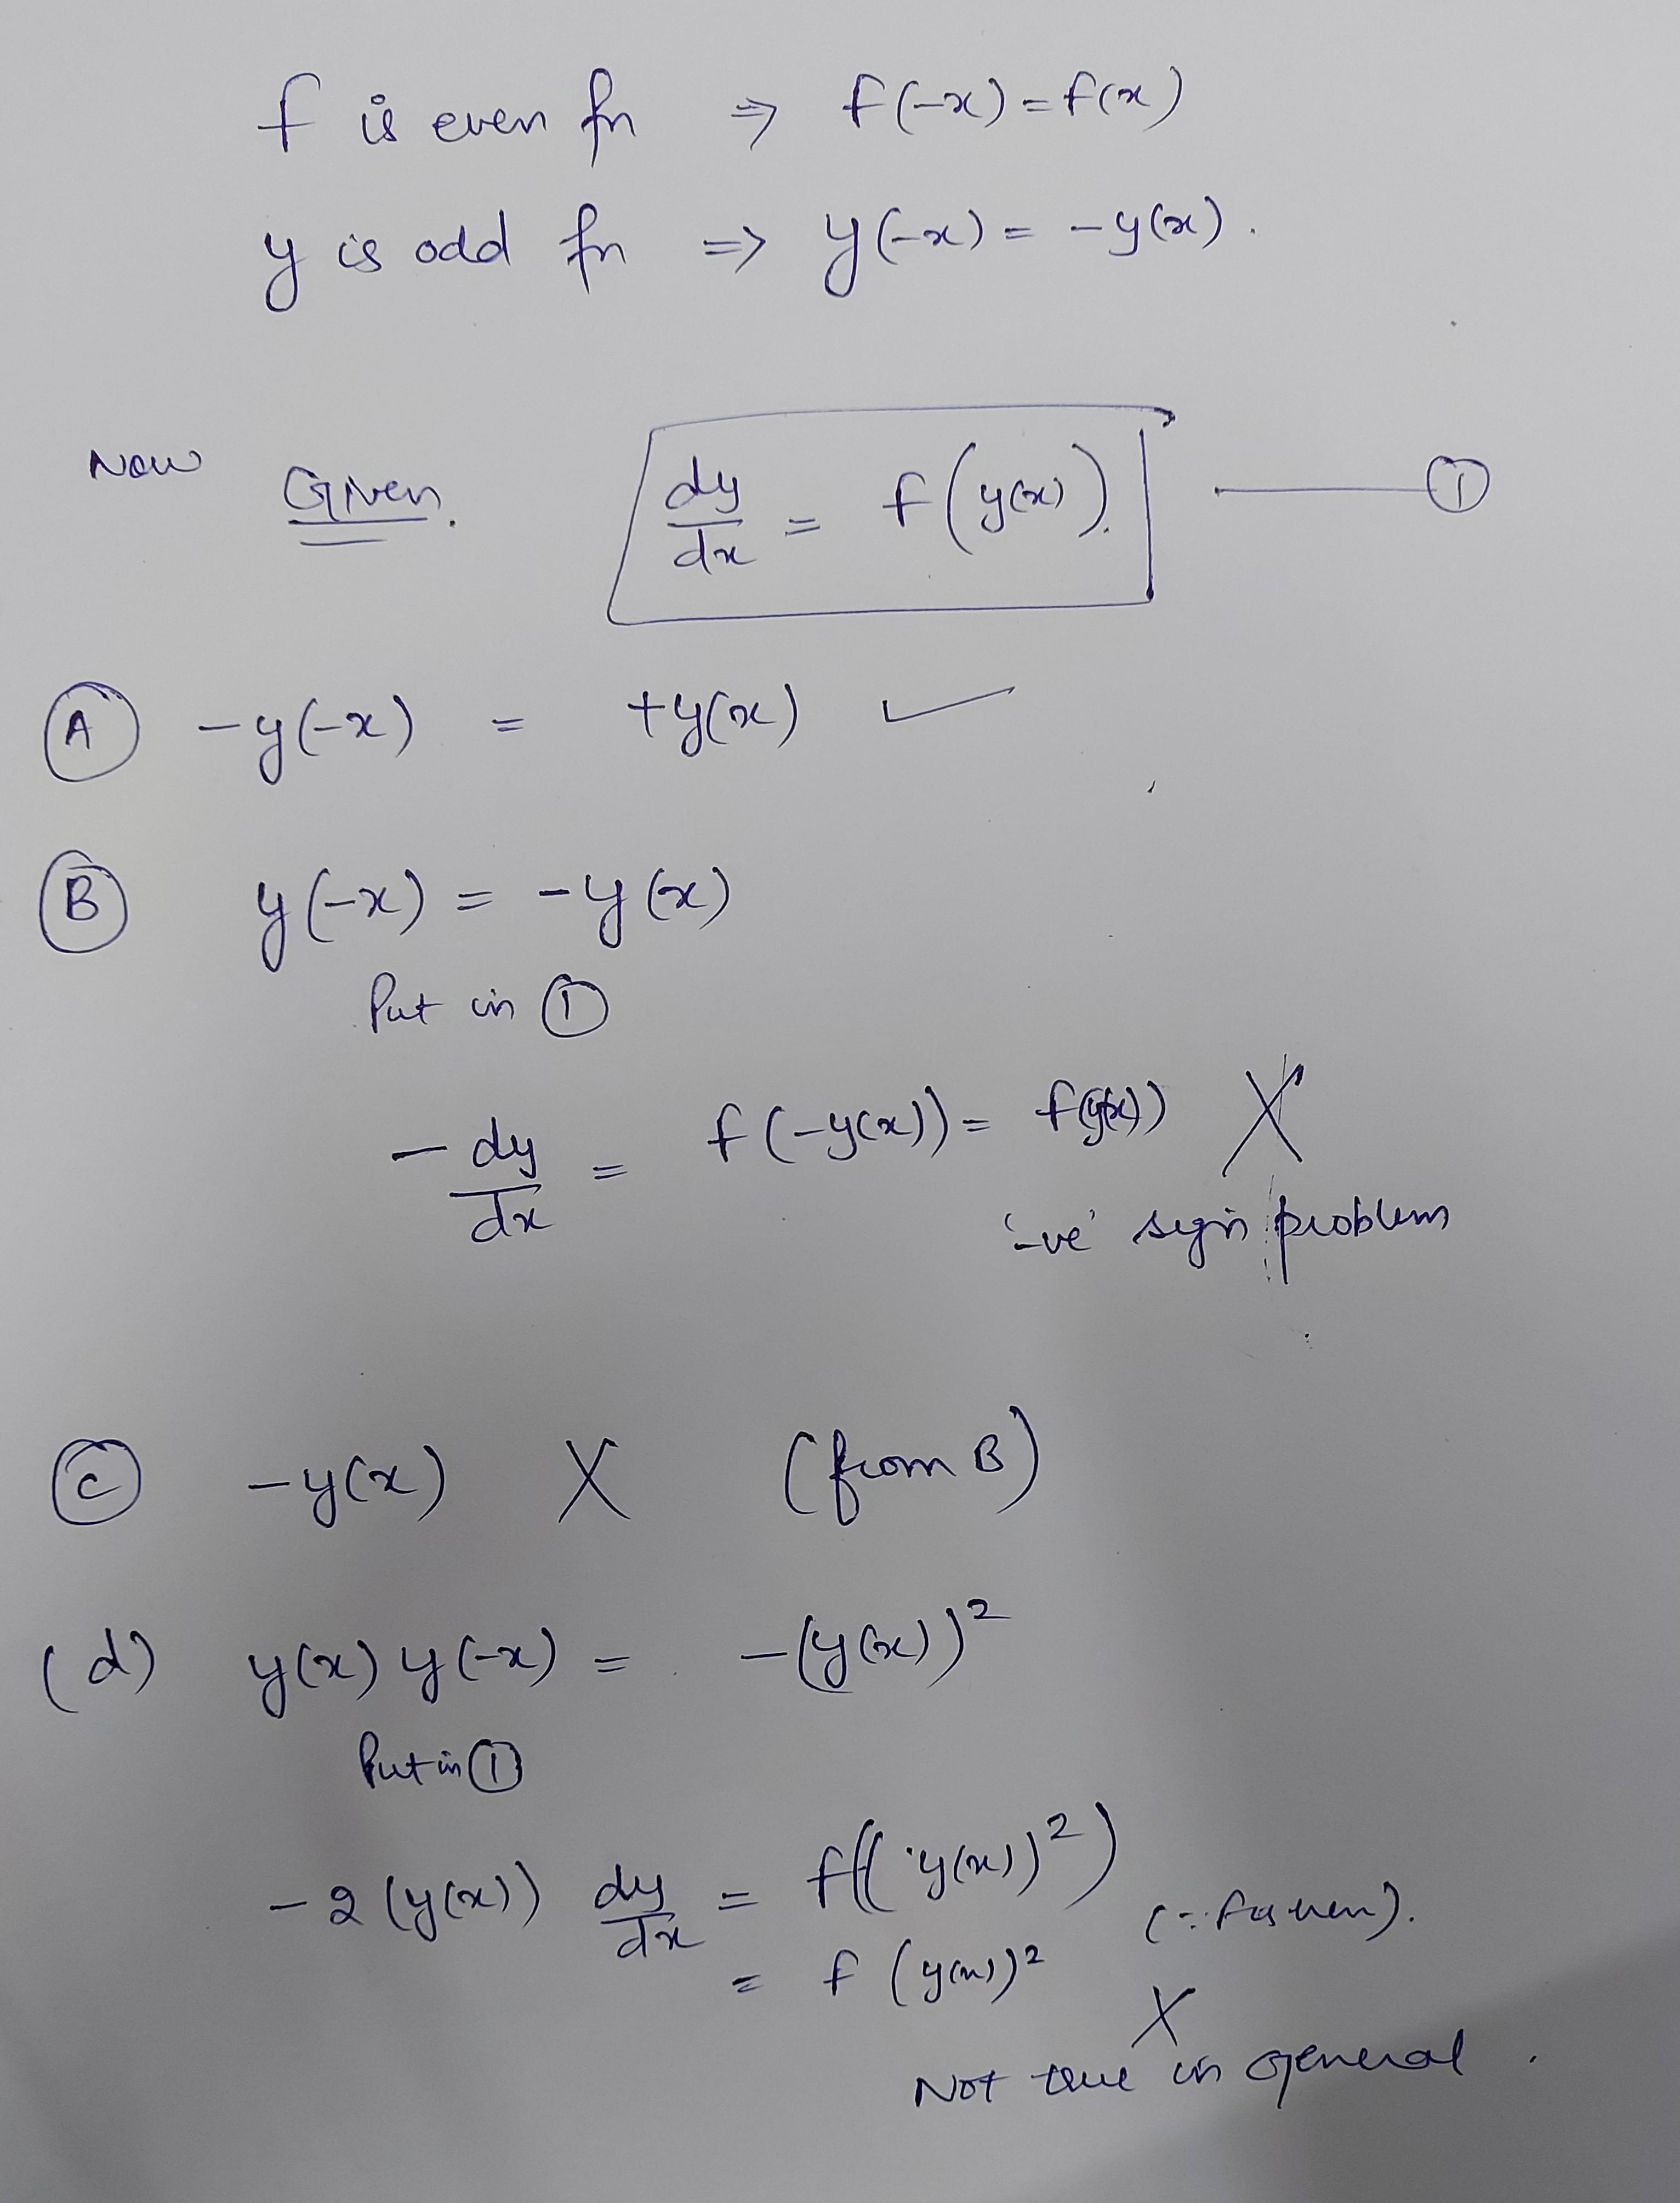 f is even fn ⇒ f(-x) = f(x)
y is odd fn ⇒ y(-x) = -y(x).
Now Given. dy/dx = f(y(x)). —— ①
Ⓐ -y(-x) = +y(x) ✓
Ⓑ y(-x) = -y(x)
Put in ①
- dy/dx = f(-y(x)) = f(y(x)) X
'-ve' sign problem
Ⓒ -y(x) X (from B)
(d) y(x) y(-x) = -(y(x))²
Put in ①
-2 (y(x)) dy/dx = f((y(x))²)
= f (y(x))² (∵ f is even).
X
Not true in general.